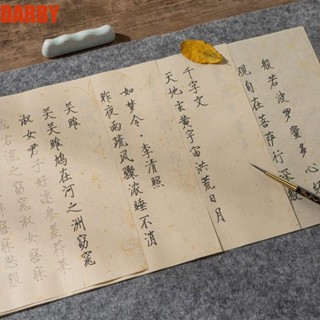 DARBY
般若波罗蜜多心
观自在菩萨行深般
千字文
天地玄黄宇宙洪荒日月
如梦令·李清照
昨夜雨疏风骤浓睡不消
关雎
关关雎鸠在河之洲窈窕
淑女君子好逑参差荇菜
左右流之窈窕淑女寤寐